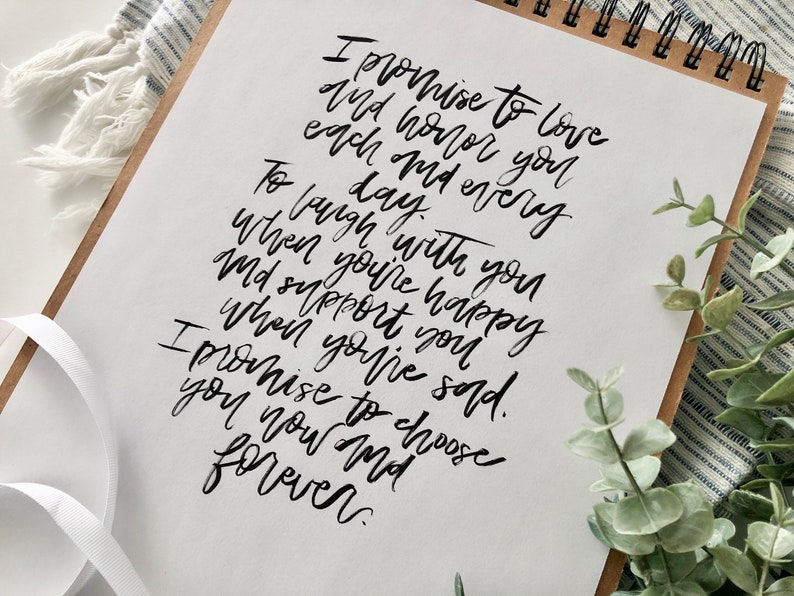 I promise to love
and honor you
each and every
day.
To laugh with you
when you're happy
and support you
when you're sad.
I promise to choose
you now and
forever.